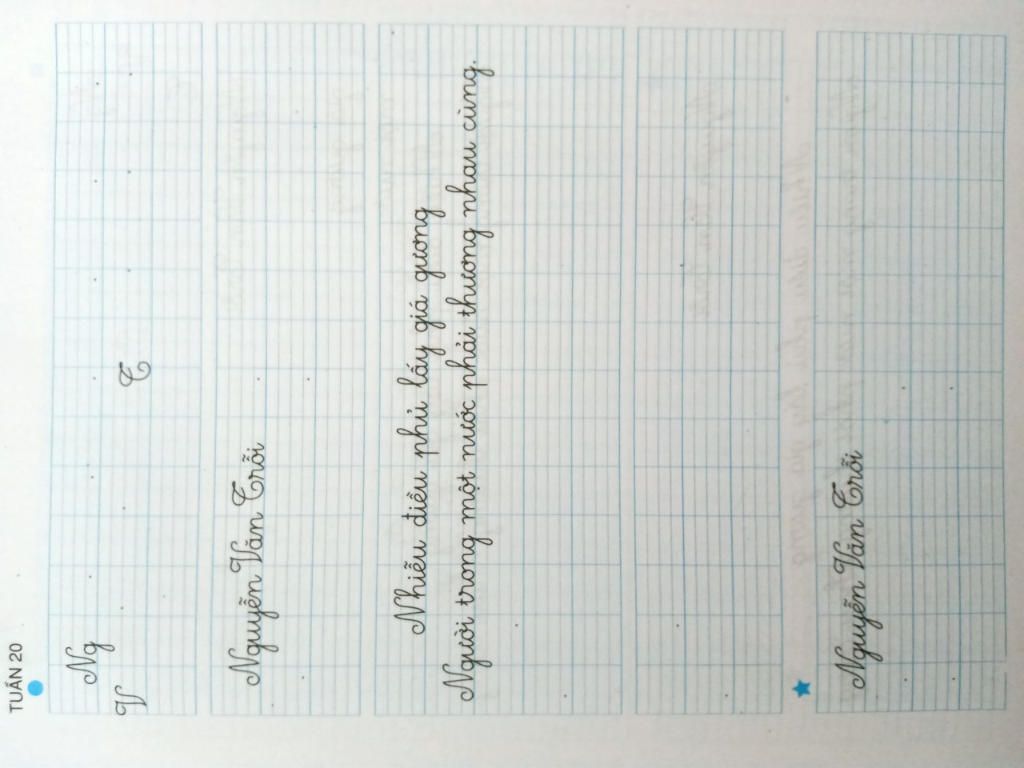 TUẦN 20
Ng
V T
Nguyễn Văn Trỗi
Nhiễu điều phủ lấy giá gương
Người trong một nước phải thương nhau cùng.
Nguyễn Văn Trỗi